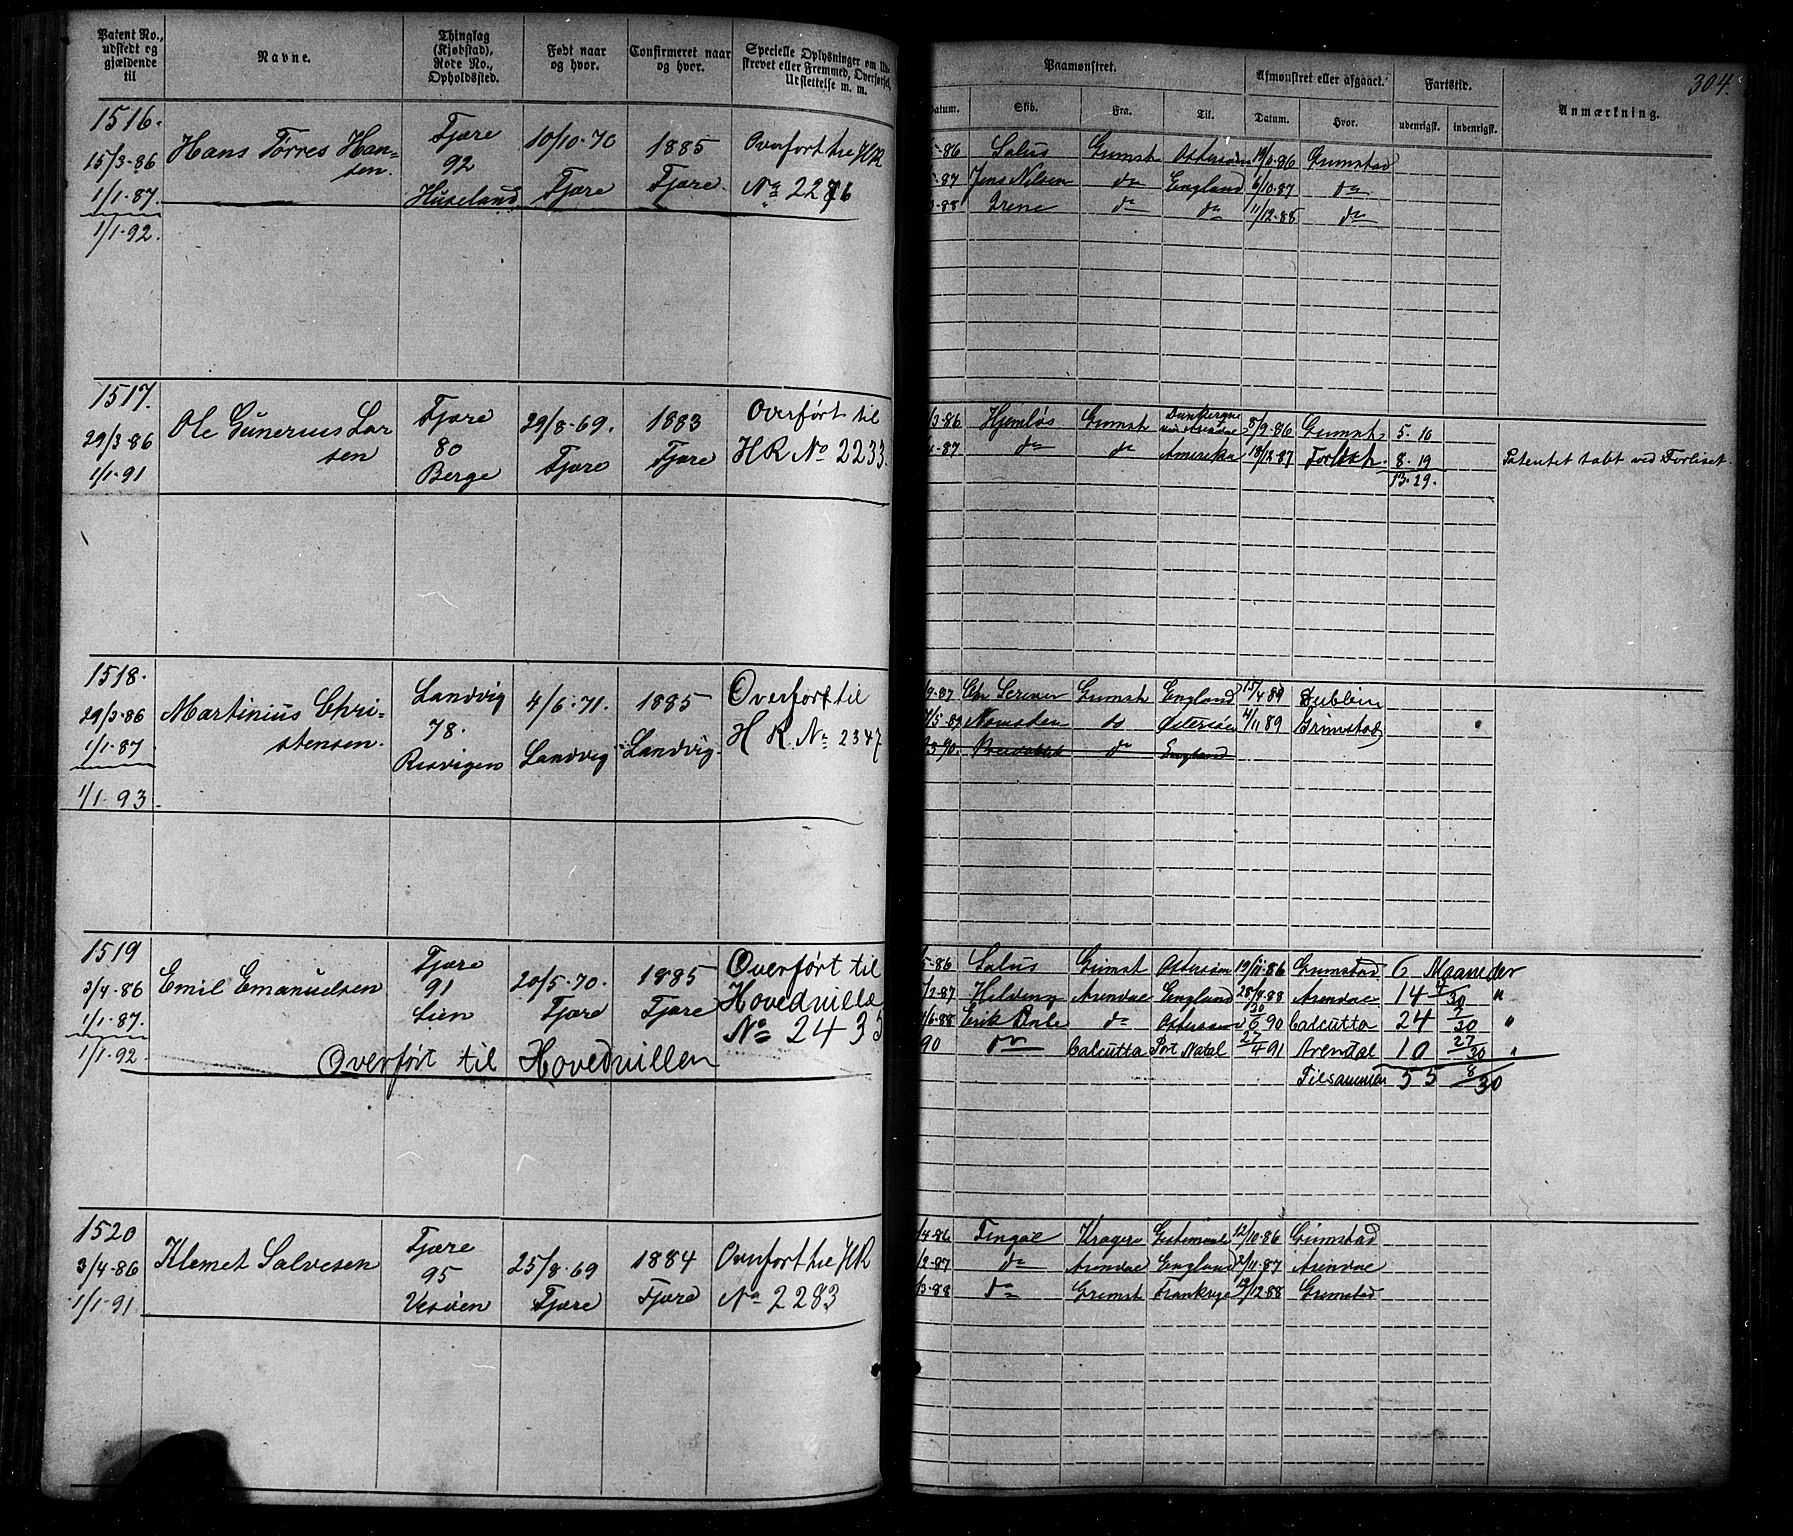 304.
Patent No., udstedt og gjældende til
Navne.
Thinglag (Kjøbstad), Rode No., Opholdssted.
Født naar og hvor.
Confirmeret naar og hvor.
Specielle Oplysninger om Ud-
skrevet eller Fremmed, Overførsel,
Udslettelse m. m.
Paamønstret.
Datum.
Skib.
Fra.
Til.
Afmønstret eller afgaaet.
Datum.
Hvor.
Fartstid.
udenrigsk.
indenrigsk.
Anmærkning.
1516.
15/3-86
1/1-87.
1/1-92.
Hans Torres Han-
sen.
Fjære
92
Huseland
10/10-70
Fjære
1885
Fjære
Overført til HR
No 2276
5-86 Solus Grimst Østersøen 19/11-86 Grimstad
5-87 Jens Nilsen do England 6/10-87 do
3-88 Irene do do 11/12-88 do
1517.
29/3-86
1/1-91
Ole Gunerius Lar
sen
Fjære
80
Berge
29/8-69.
Fjære
1883
Fjære
Overført til
HR No 2233.
/3-86 Hjemløs Grimst Dunkerque 8/9-86 Grimst 5-10
4-87 do do Amerika 18/12-87 Forlist 8-19
13-29.
Patentet tabt ved Forliset
1518.
29/3-86
1/1-87
1/1-93.
Martinius Chri-
stensen.
Landvig
78.
Resvigen
4/6-71.
Landvig
1885
Landvig.
Overført til
HR. No 2347
/9-87 Chr Scriver Grimst England 15/4 89 Dublin
/5-89 Nomaden do Østersøen 4/11 89 Grimstad
3 90. do England
1519
3/4-86
1/1-87.
1/1-92.
Emil Emanuelsen
Fjære
91
Lien
20/5-70.
Fjære
1885
Fjære
Overført til
Hovedrulle
No 2435
Overført til Hovedrullen
5-86 Solus Grimst Østersøen 19/11-86 Grimstad 6 Maaneder
/2-87 Arendal England 88 Arendal 14 /30 "
/6-88 Erik do Østersøen 90 Calcutta 24 /30 "
90 do Calcutta Port Natal 27/4 91 Arendal 10 27/30 "
Tilsammen 55 8/30
1520
3/4-86
1/1-91
Klemet Salvesen
Fjære
95
Vessøen
25/8-69
Fjære
1884
Fjære
Overført til HR
No 2283
/4-86 Fingal Kragerø 12/10-86 Grimstad
/2-87 do Arendal England 2/11-87 Arendal
/3-88 do Grimst Frankrige 19/12-88 Grimstad